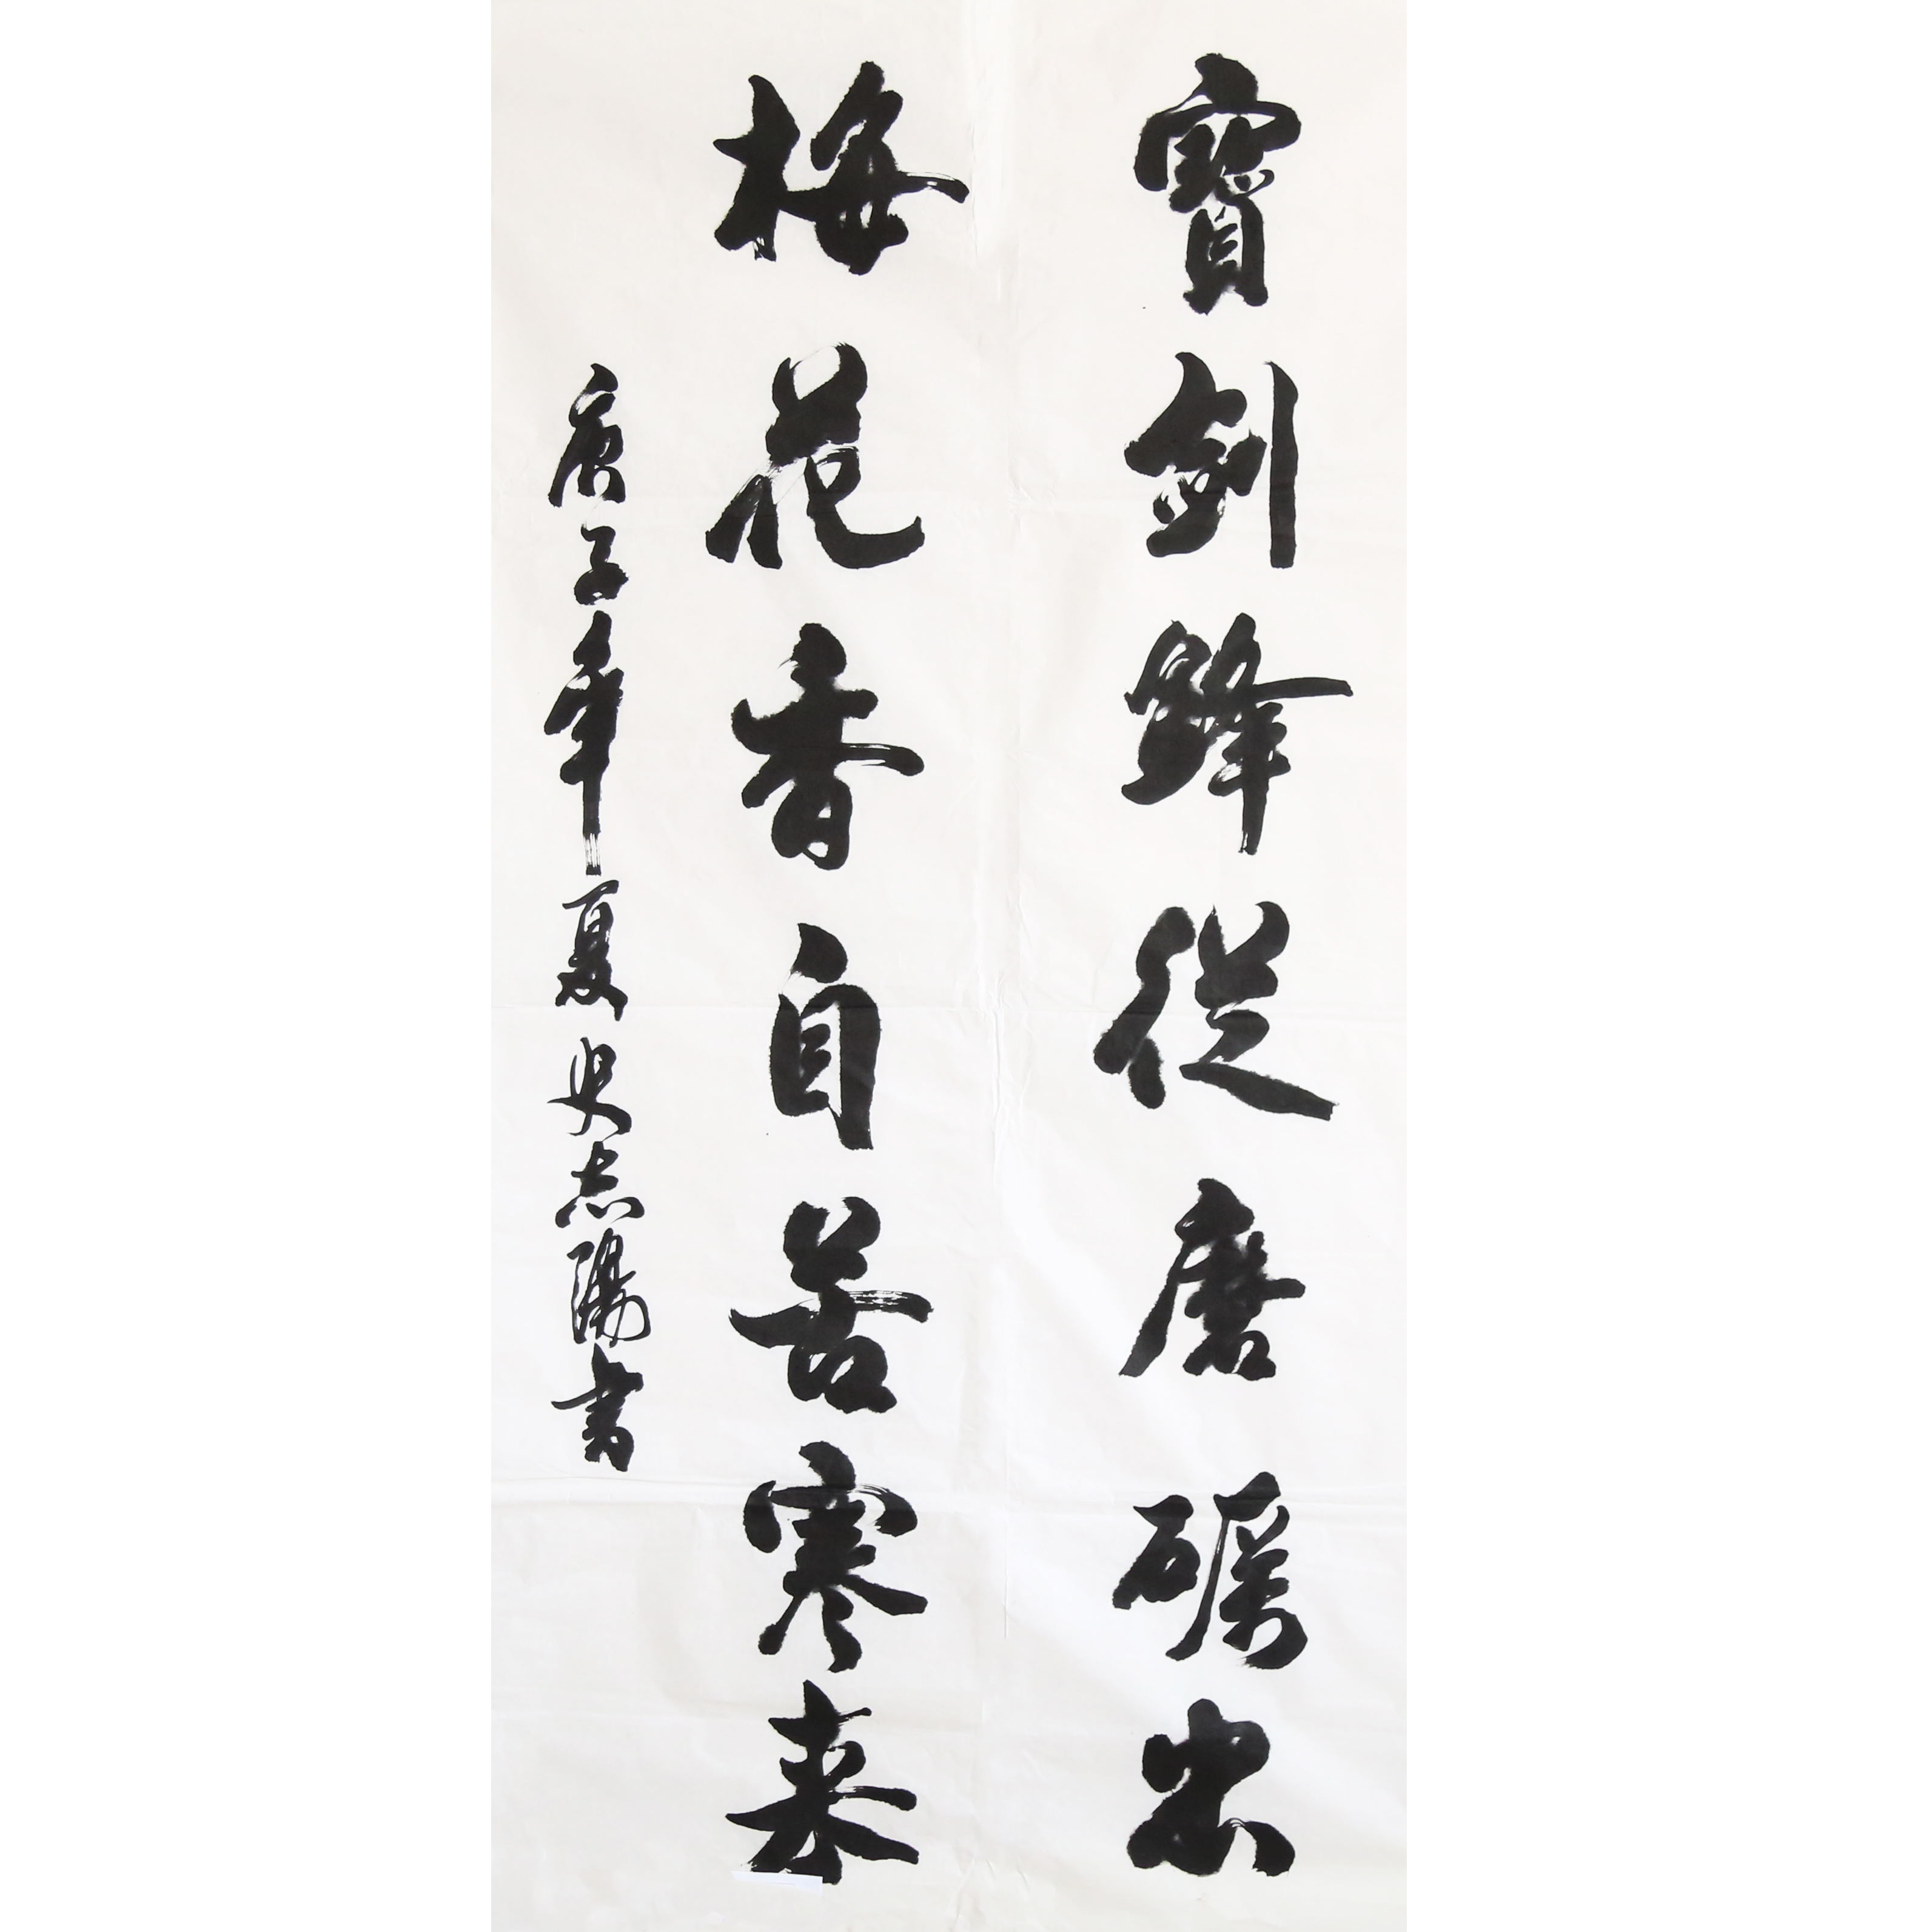 寶劍鋒從磨礪出
梅花香自苦寒来
庚子年夏史志陽書